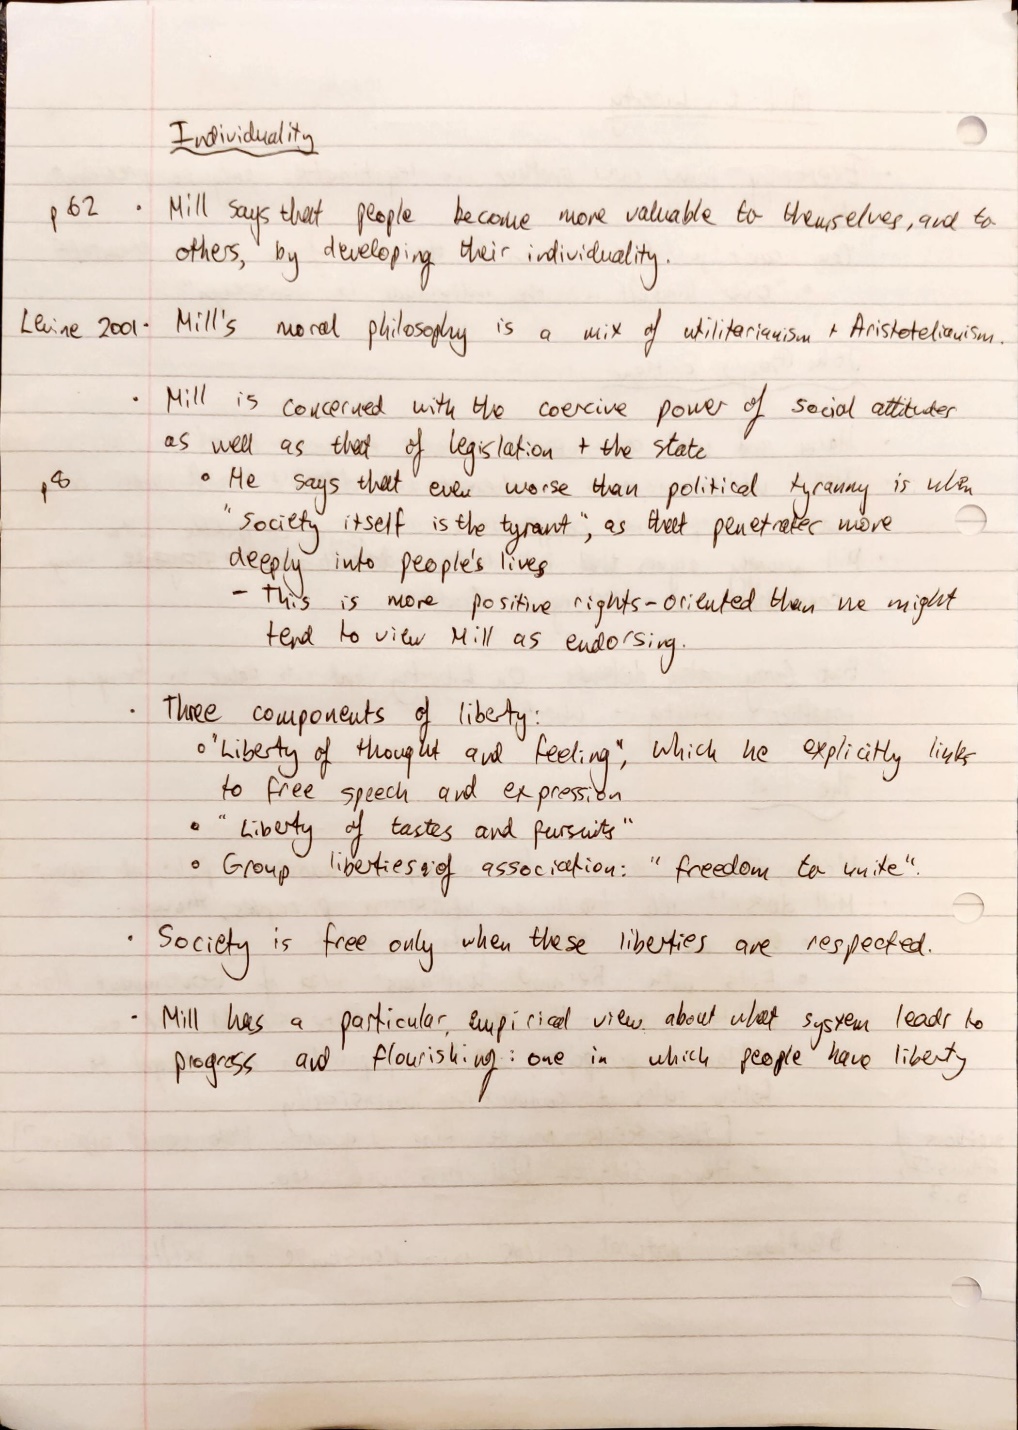 Individuality
p62 • Mill says that people become more valuable to themselves, and to
others, by developing their individuality.
Levine 2001 • Mill's moral philosophy is a mix of utilitarianism + Aristotelianism.
• Mill is concerned with the coercive power of social attitudes
as well as that of legislation + the state
p8 • He says that even worse than political tyranny is when
"society itself is the tyrant", as that penetrates more
deeply into people's lives
- This is more positive rights-oriented than we might
tend to view Mill as endorsing.
• Three components of liberty:
• "Liberty of thought and feeling", which he explicitly links
to free speech and expression
• "Liberty of tastes and pursuits"
• Group liberties of association: "freedom to unite".
• Society is free only when these liberties are respected.
• Mill has a particular, empirical view about what system leads to
progress and flourishing: one in which people have liberty